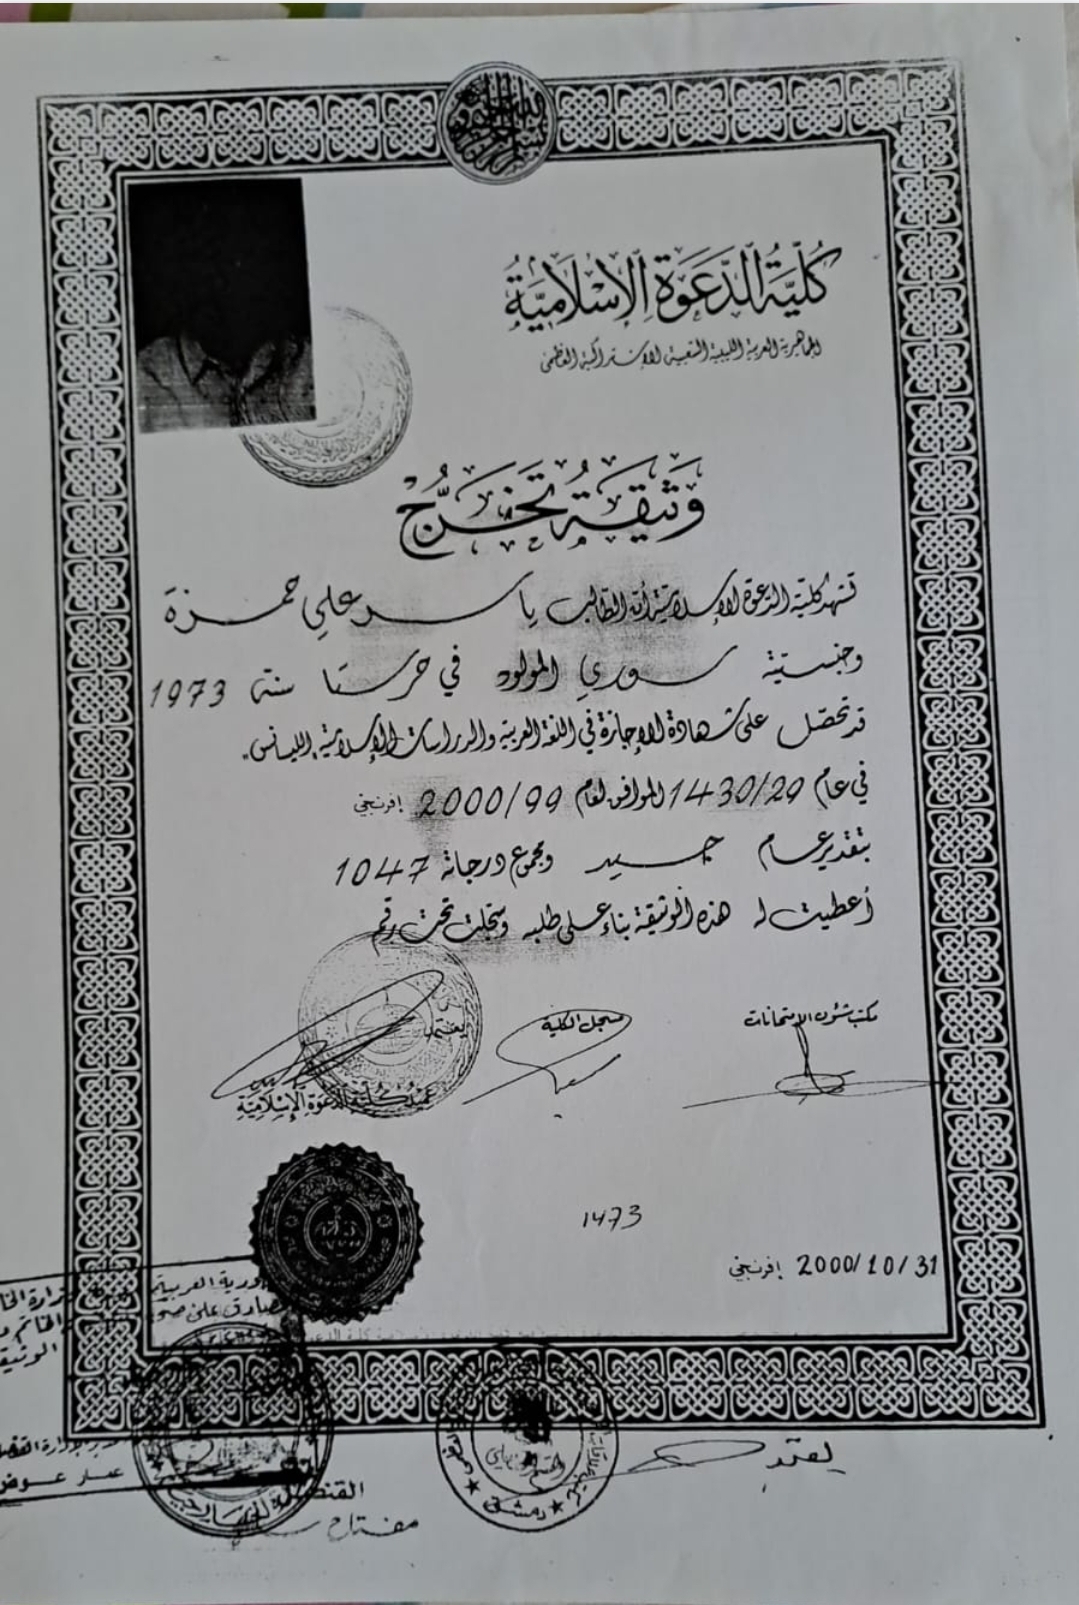 كُلِّيَّةُ الدَّعْوَةِ الإِسْلَامِيَّةُ
الجماهيرية العربية الليبية الشعبية الاشتراكية العظمى
وَثِيقَةُ تَخَرُّجٍ
تشهد كلية الدعوة الإسلامية أن الطالب ياسر علي حمزة
وجنسيته سوري المولود في حرستا سنة 1973
قد تحصل على شهادة الإجازة في اللغة العربية والدراسات الإسلامية "الليسانس"
في عام 1430/29 الموافق لعام 2000/99 إفرنجي
بتقدير عام جيد ومجموع درجاته 1047
أعطيت له هذه الوثيقة بناء على طلبه وسجلت تحت رقم
مكتب شئون الإمتحانات
مسجل الكلية
يعتمد
عميد كلية الدعوة الإسلامية
1473
2000/10/31 إفرنجي
وزارة
العربية
على
الخاتم
يعتمد
دمشق
القنصل
مفتاح